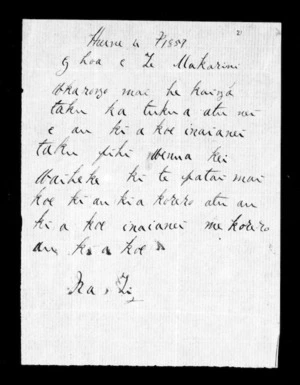 Hurae 4 1857
E hoa e Te Makarini
Wkarongo mai he kainga
taku ka tukua atu nei
e au ki a koe inaianei
taku pihi wenua kei
Waiheke ki te patai mai
koe ki au ki a korero atu au
ki a koe inaianei me korero
au ki a koe
Na Te